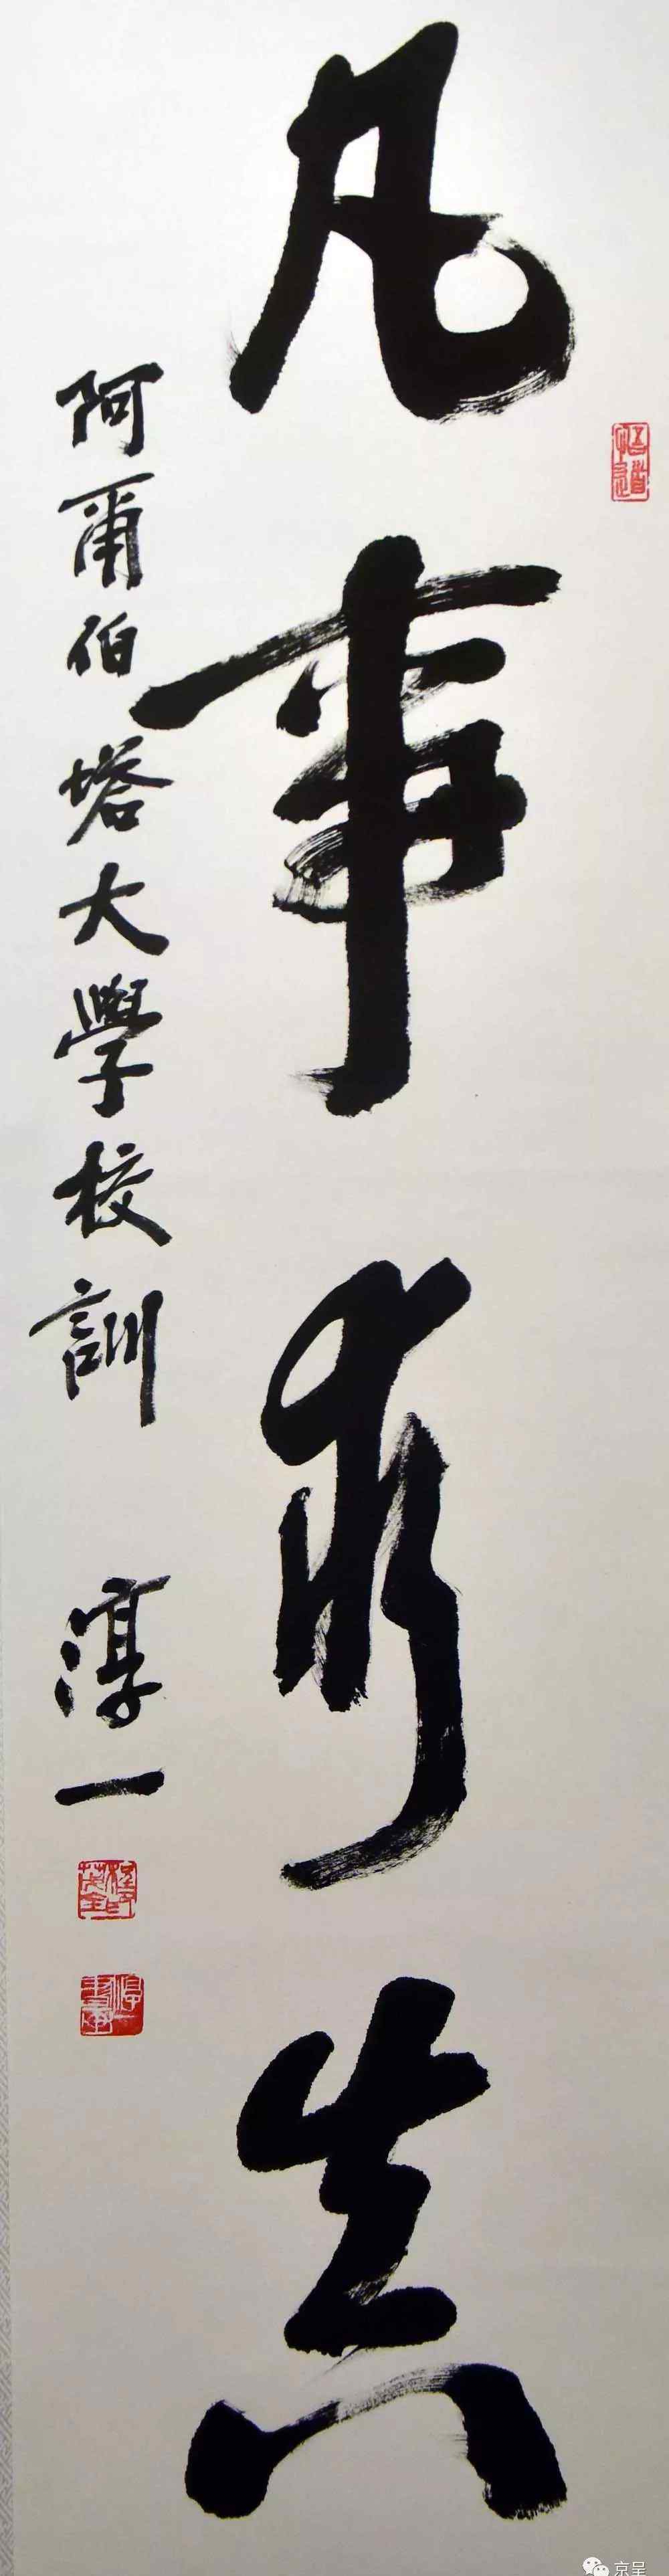 凡事求真
阿爾伯塔大學校訓 淳一
京呈